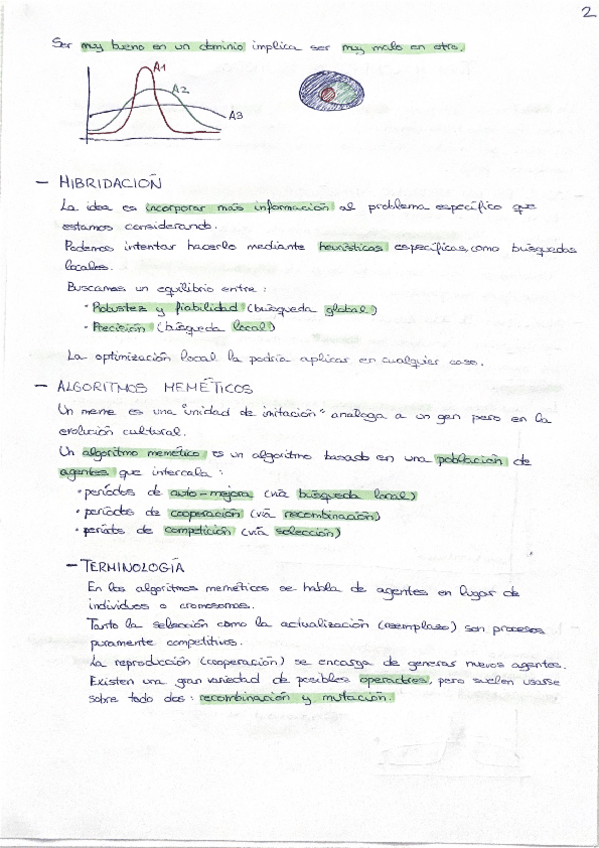 2
Ser muy bueno en un dominio implica ser muy malo en otro.
A1
A2
A3
- HIBRIDACIÓN
La idea es incorporar más información al problema específico que
estamos considerando.
Podemos intentar hacerlo mediante heurísticas específicas, como búsquedas
locales.
Buscamos un equilibrio entre:
· Robustez y fiabilidad (búsqueda global)
· Precisión (búsqueda local)
La optimización local la podría aplicar en cualquier caso.
- ALGORITMOS MEMÉTICOS
Un meme es una "unidad de imitación" análoga a un gen pero en la
evolución cultural.
Un algoritmo memético es un algoritmo basado en una población de
agentes que intercala:
· períodos de auto-mejora (vía búsqueda local)
· períodos de cooperación (vía recombinación)
· períodos de competición (vía selección)
- TERMINOLOGÍA
En los algoritmos meméticos se habla de agentes en lugar de
individuos o cromosomas.
Tanto la selección como la actualización (reemplazo) son procesos
puramente competitivos.
La reproducción (cooperación) se encarga de generar nuevos agentes.
Existen una gran variedad de posibles operadores, pero suelen usarse
sobre todo dos: recombinación y mutación.